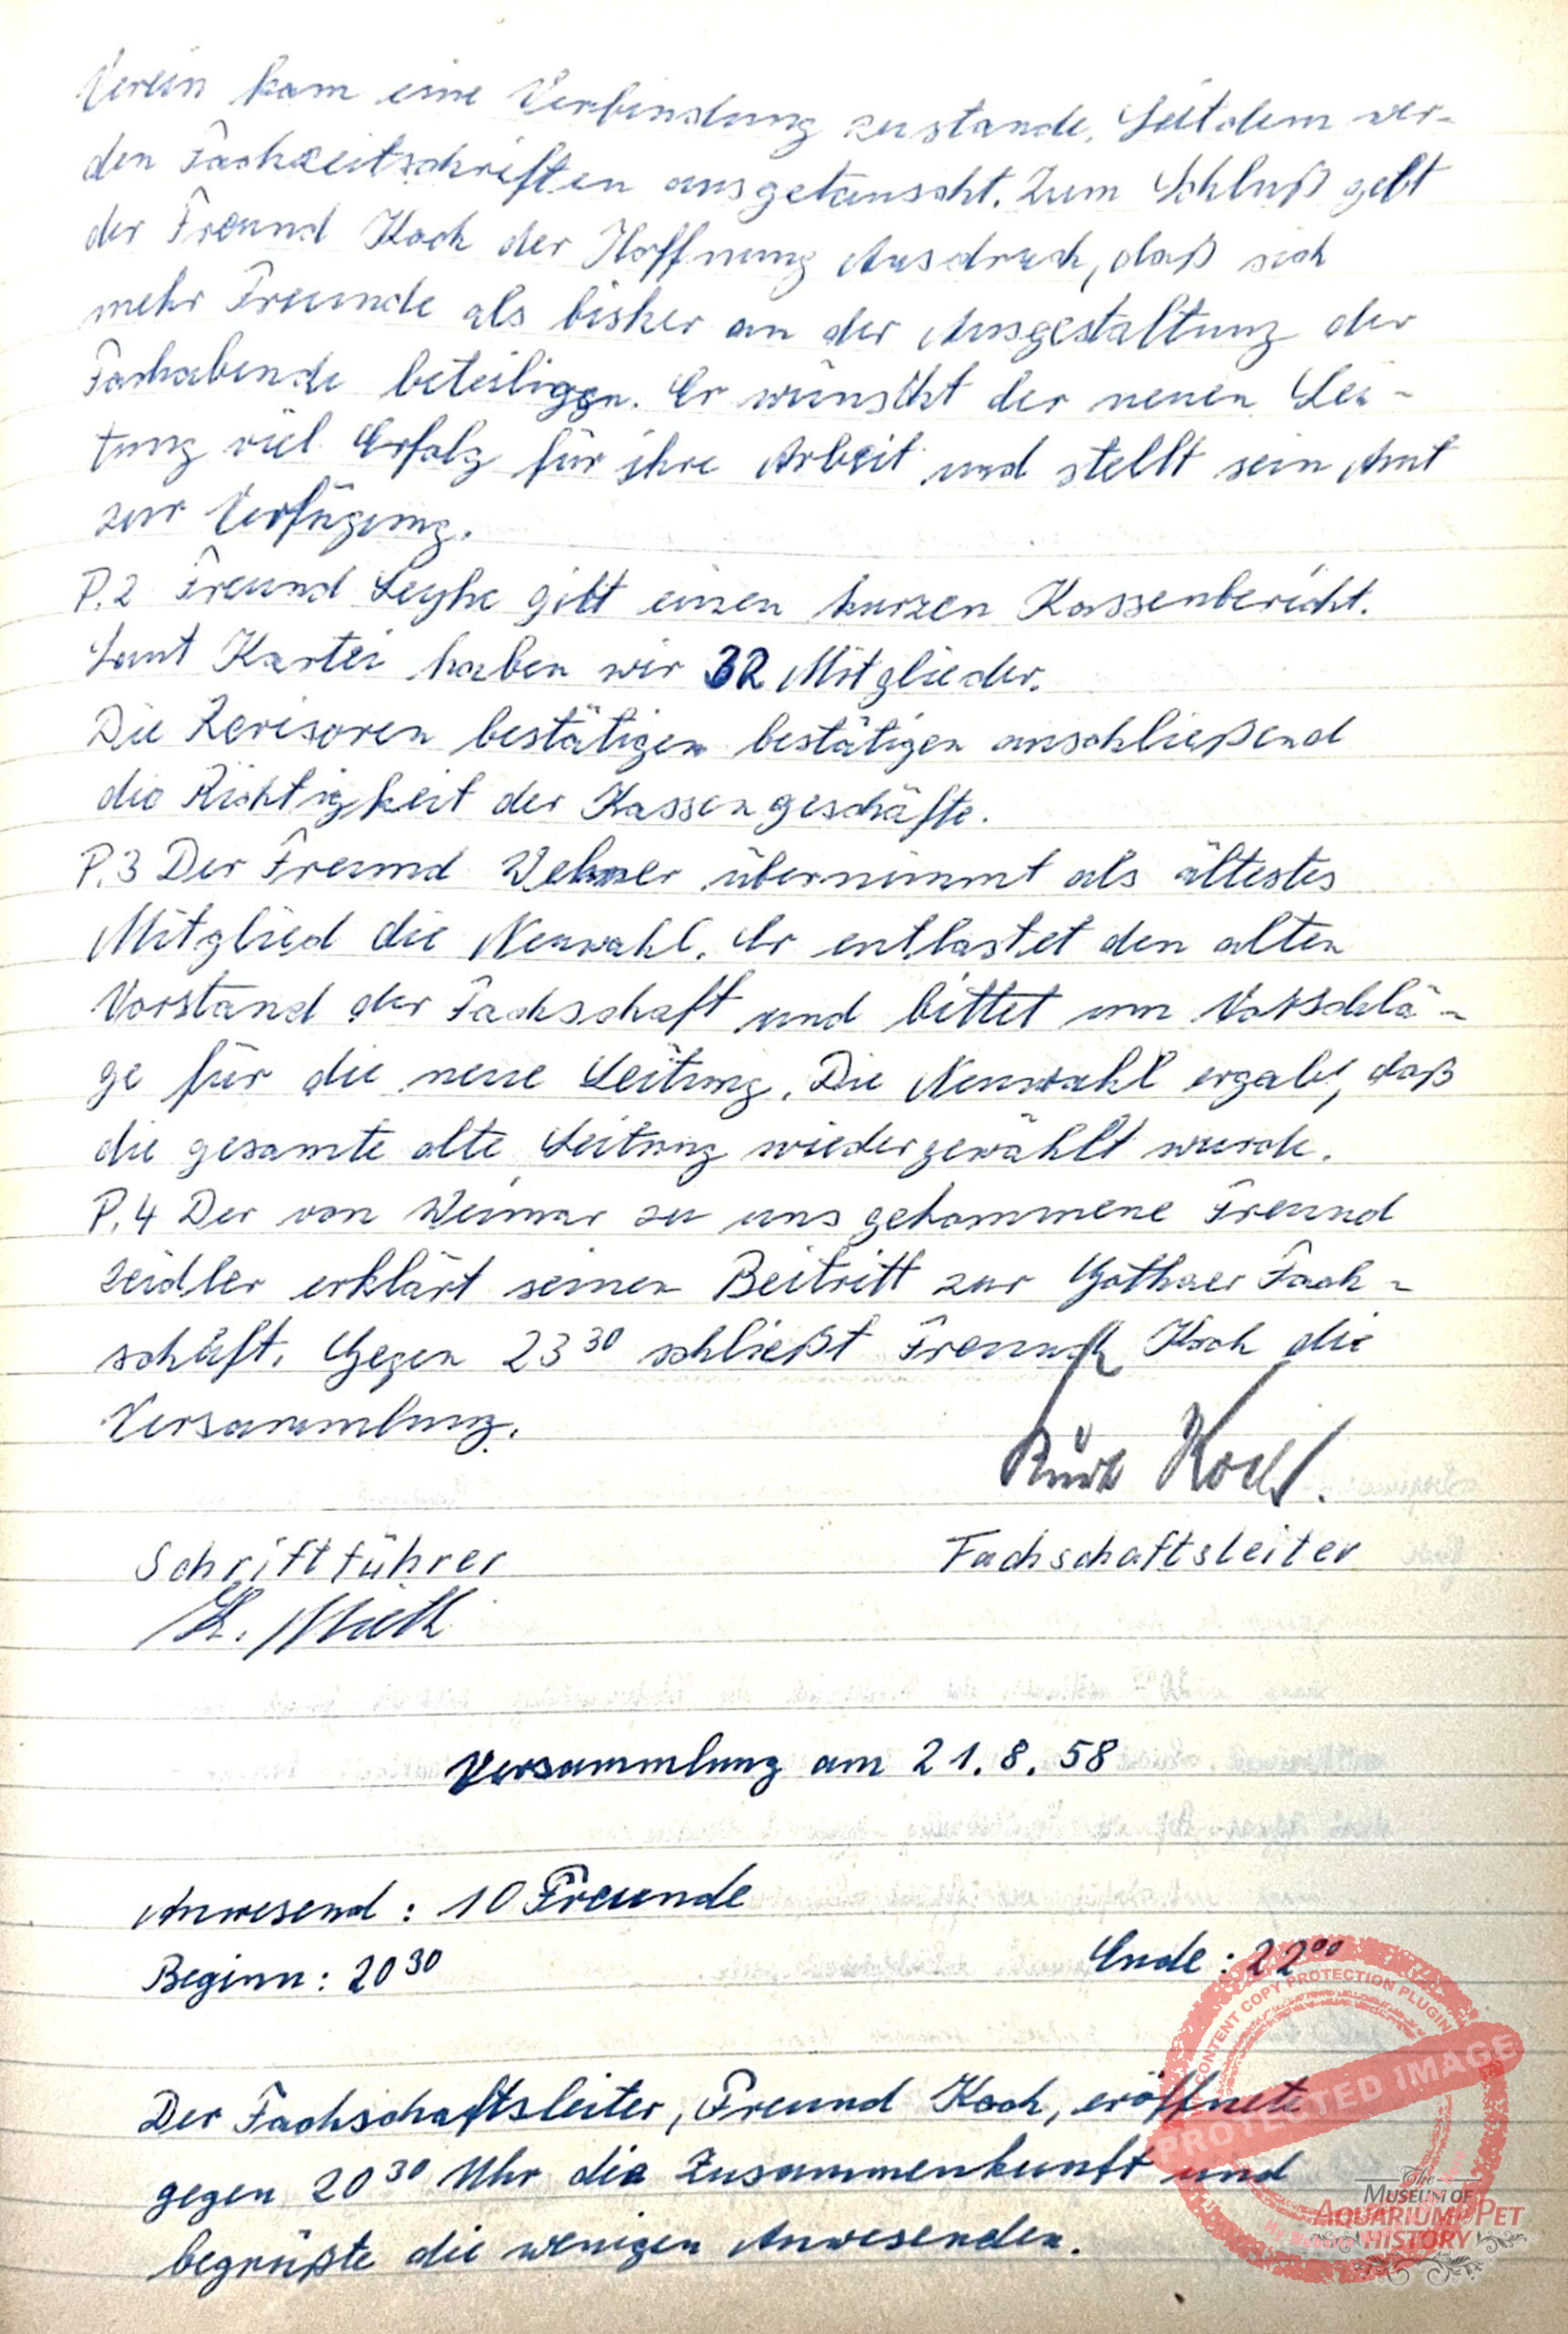 Verein kam eine Verbindung zustande. Seitdem wer-
den Fachzeitschriften ausgetauscht. Zum Schluß gebt
der Freund Koch der Hoffnung Ausdruck, daß sich
mehr Freunde als bisher an der Ausgestaltung der
Fachabende beteiligen. Er wünscht der neuen Lei-
tung viel Erfolg für ihre Arbeit und stellt sein Amt
zur Verfügung.
P.2 Freund Leyhe gibt einen kurzen Kassenbericht.
Laut Kartei haben wir 32 Mitglieder.
Die Revisoren bestätigen bestätigen anschließend
die Richtigkeit der Kassengeschäfte.
P.3 Der Freund Wehner übernimmt als ältestes
Mitglied die Neuwahl. Er entlastet den alten
Vorstand der Fachschaft und bittet um Vorschlä-
ge für die neue Leitung. Die Neuwahl ergab, daß
die gesamte alte Leitung wiedergewählt wurde.
P.4 Der von Weimar zu uns gekommene Freund
Zeidler erklärt seinen Beitritt zur Gothaer Fach-
schaft. Gegen 23 30 schließt Freund Koch die
Versammlung.
Kurt Koch.
Schriftführer Fachschaftsleiter
Versammlung am 21.8.58
Anwesend: 10 Freunde
Beginn: 20 30 Ende: 22 00
Der Fachschaftsleiter, Freund Koch, eröffnete
gegen 20 30 Uhr die Zusammenkunft und
begrüßte die wenigen Anwesenden.
CONTENT COPY PROTECTION PLUGIN
PROTECTED IMAGE
My Website
The
MUSEUM OF
AQUARIUM & PET
HISTORY